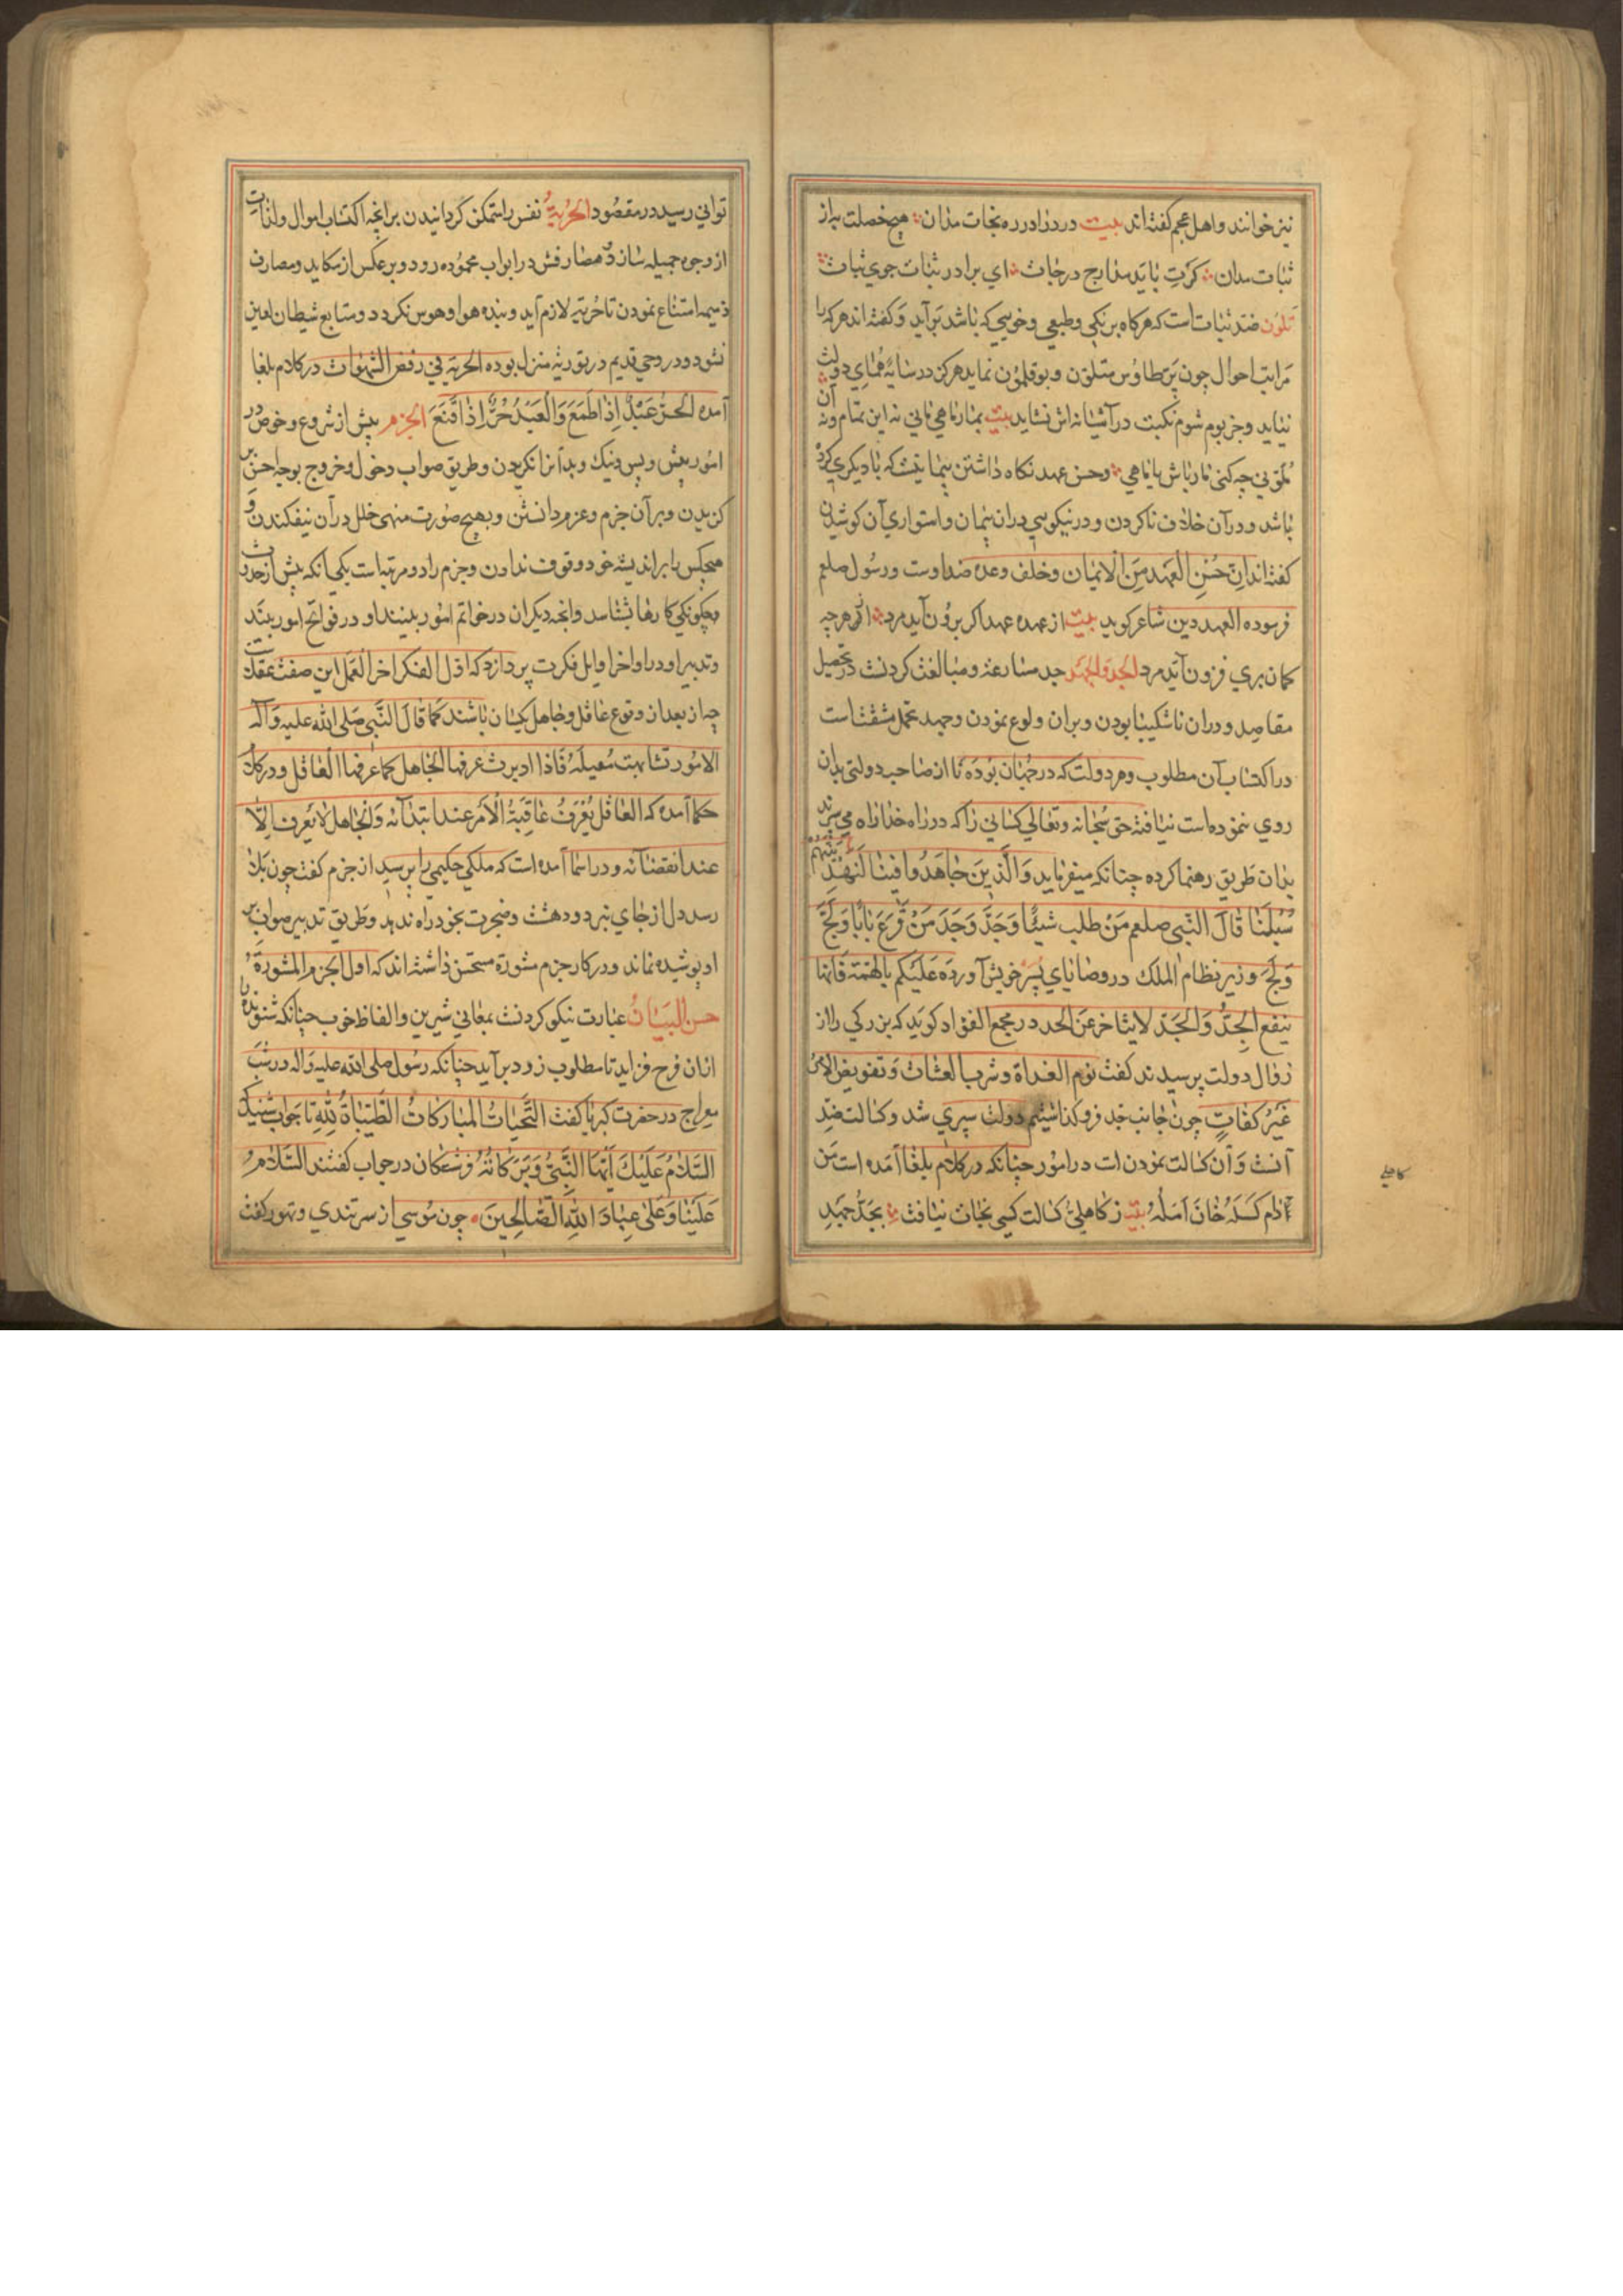 نیز خوانند و اهل عجم کفته اند بیت دردزا در ره نجات مدان هیچ خصلت به از
ثبات مدان کرت باید مدارج درجات ای برادر ثبات جوی ثبات
تلون ضد ثبات است که هرکاه بر نکی وطبعی وخویی که باشد برآید وکفته اند هرکه را
مراتب احوال چون پر طاوس متلون و بوقلمون نماید هرکز در سایهٔ همای دولت
نیاید وجز بوم شوم نکبت در آشیانه اش نشاید بیت بمار ماهی مانی نه این تمام ونه آن
چه کنی مار باش یا ماهی وحسن عهد نکاه داشتن پیمانیت که با دیکری کرد
باشد ودر آن خلاف ناکردن ودر نیکویی در ان پیمان واستواری آن کوشیدن
کفته اند ان حسن العهد من الایمان وخلف وعده ضد اوست ورسول صلعم
فرموده العهد دین شاعر کوید بیت از عهده عهد اکر برون آید مرد از هرچه
کمان بری فزون آید مرد الجد والجهد جد مسارعة ومبالغت کردنت در تحصیل
مقاصد ودران ناشکیبا بودن وبران ولوع نمودن وجهد تحمل مشقت است
در اکتساب آن مطلوب وهر دولت که در جهان بوده تا از صاحب دولتی بدان
روی ننموده است نیافته حق سبحانه وتعالی کسانی را که در راه خدا راه می سپرند
بدان طریق رهنما کرده چنانکه میفرماید وَالَّذینَ جاهَدوا فینا لَنَهْدِیَنَّهُم
سُبُلَنا قال النبی صلعم مَنْ طلب شیئًا وَجَدَّ وَجَدَ مَنْ قَرَعَ بابًا وَلَجَّ
وَلَجَ وزیر نظام الملک در وصایای پسر خویش آورده علیکم بالهمة فانها
ینفع الجِدُّ وَالجَدّ لا یتاخر عن الحد در مجمع الفواد کوید که بزرکی را از
زوال دولت پرسیدند کفت نوم الغداة وشرب العشات وتفویض الامر
غیر کفات چون جانب جد فروکذاشتیم دولت سپری شد وکسالت ضد
آنست وآن کسالت نمودن است در امور چنانکه در کلام بلغا آمده است من
دام کَسَلُه خان اَمَلُهُ بیت ز کاهلی وکسالت کسی نجات نیافت بجد جهد
کاهلی
توانی رسید در مقصود الحریة نفس را متمکن کردانیدن برانچه اکتساب اموال
از وجوه جمیله سازد ومصارفش در ابواب محموده رود وبر عکس از مکاید ومصارف
ذمیمه امتناع نمودن تا حریة لازم آید وبنده هوا وهوس نکردد ومتابع شیطان لعین
نشود ودر وحی قدیم در توریة منزل بوده الحریة فی رفض الشهوات در کلام بلغا
آمده الحرُّ عَبْدٌ اِذا طَمَعَ وَالعَبْدُ حُرٌّ اِذا قَنَعَ الحزم پیش از شروع وخوض در
امور پیش وپس ونیک وبد آنرا نکریدن وطریق صواب دخول وخروج بوجه احسن
کزیدن وبر آن جزم وعزم دانستن وبهیچ صورت منهی خلل در آن نیفکندن و
هیچکس را بر اندیشه خود وقوف ندادن وحزم را دو مرتبه است یکی آنکه پیش از حدوث
چکونکی کارها بشناسد وانچه دیکران در خواتم امور بینند او در فواتح امور بیند
وتدبیر او در اواخر اوایل فکرت پردازد که اول الفکر اخر العمل این صفت عقلاست
چه از بعد از وقوع عاقل وجاهل یکسان باشند کما قال النبی صلی الله علیه وآله
الامور تشابهت مقبلة فاذا ادبرت عرفها الجاهل کما عرفها العاقل ودر کلام
حکما آمده که العاقل یُعْرَفُ عاقِبَةُ الْاَمْر عند ابتدائه والجاهل لا یعرف الّا
عند انقضائه ودر اسما آمده است که ملکی حکیمی را پرسید از حزم کفت چون بلا
رسد دل از جای نبرد ودهشت وضجرت بخود راه ندهد وطریق تدبیر صواب بر
او پوشیده نماند ودر کار حزم مشورة مستحسن داشته اند که اول الحزم المشورة
حسن البیان عبارت نیکو کردنت بمعانی شیرین والفاظ خوب چنانکه شنونده را
ازان فرح فزاید تا مطلوب زود برآید چنانکه رسول صلی الله علیه واله در شب
معراج در حضرت کبریا کفت التَّحِیاتُ المبارکاتُ الطَّیِّباةُ لِلّهِ تا جواب شنید که
السَّلامُ عَلَیْکَ اَیُّهَا النَّبِیُّ وَبَرَکاتُهُ وفرشتکان در جواب کفتند السَّلامُ
عَلَیْنا وَعَلی عِبادِ اللهِ الصّالِحینَ چون موسی از سر تندی وتهور کفت